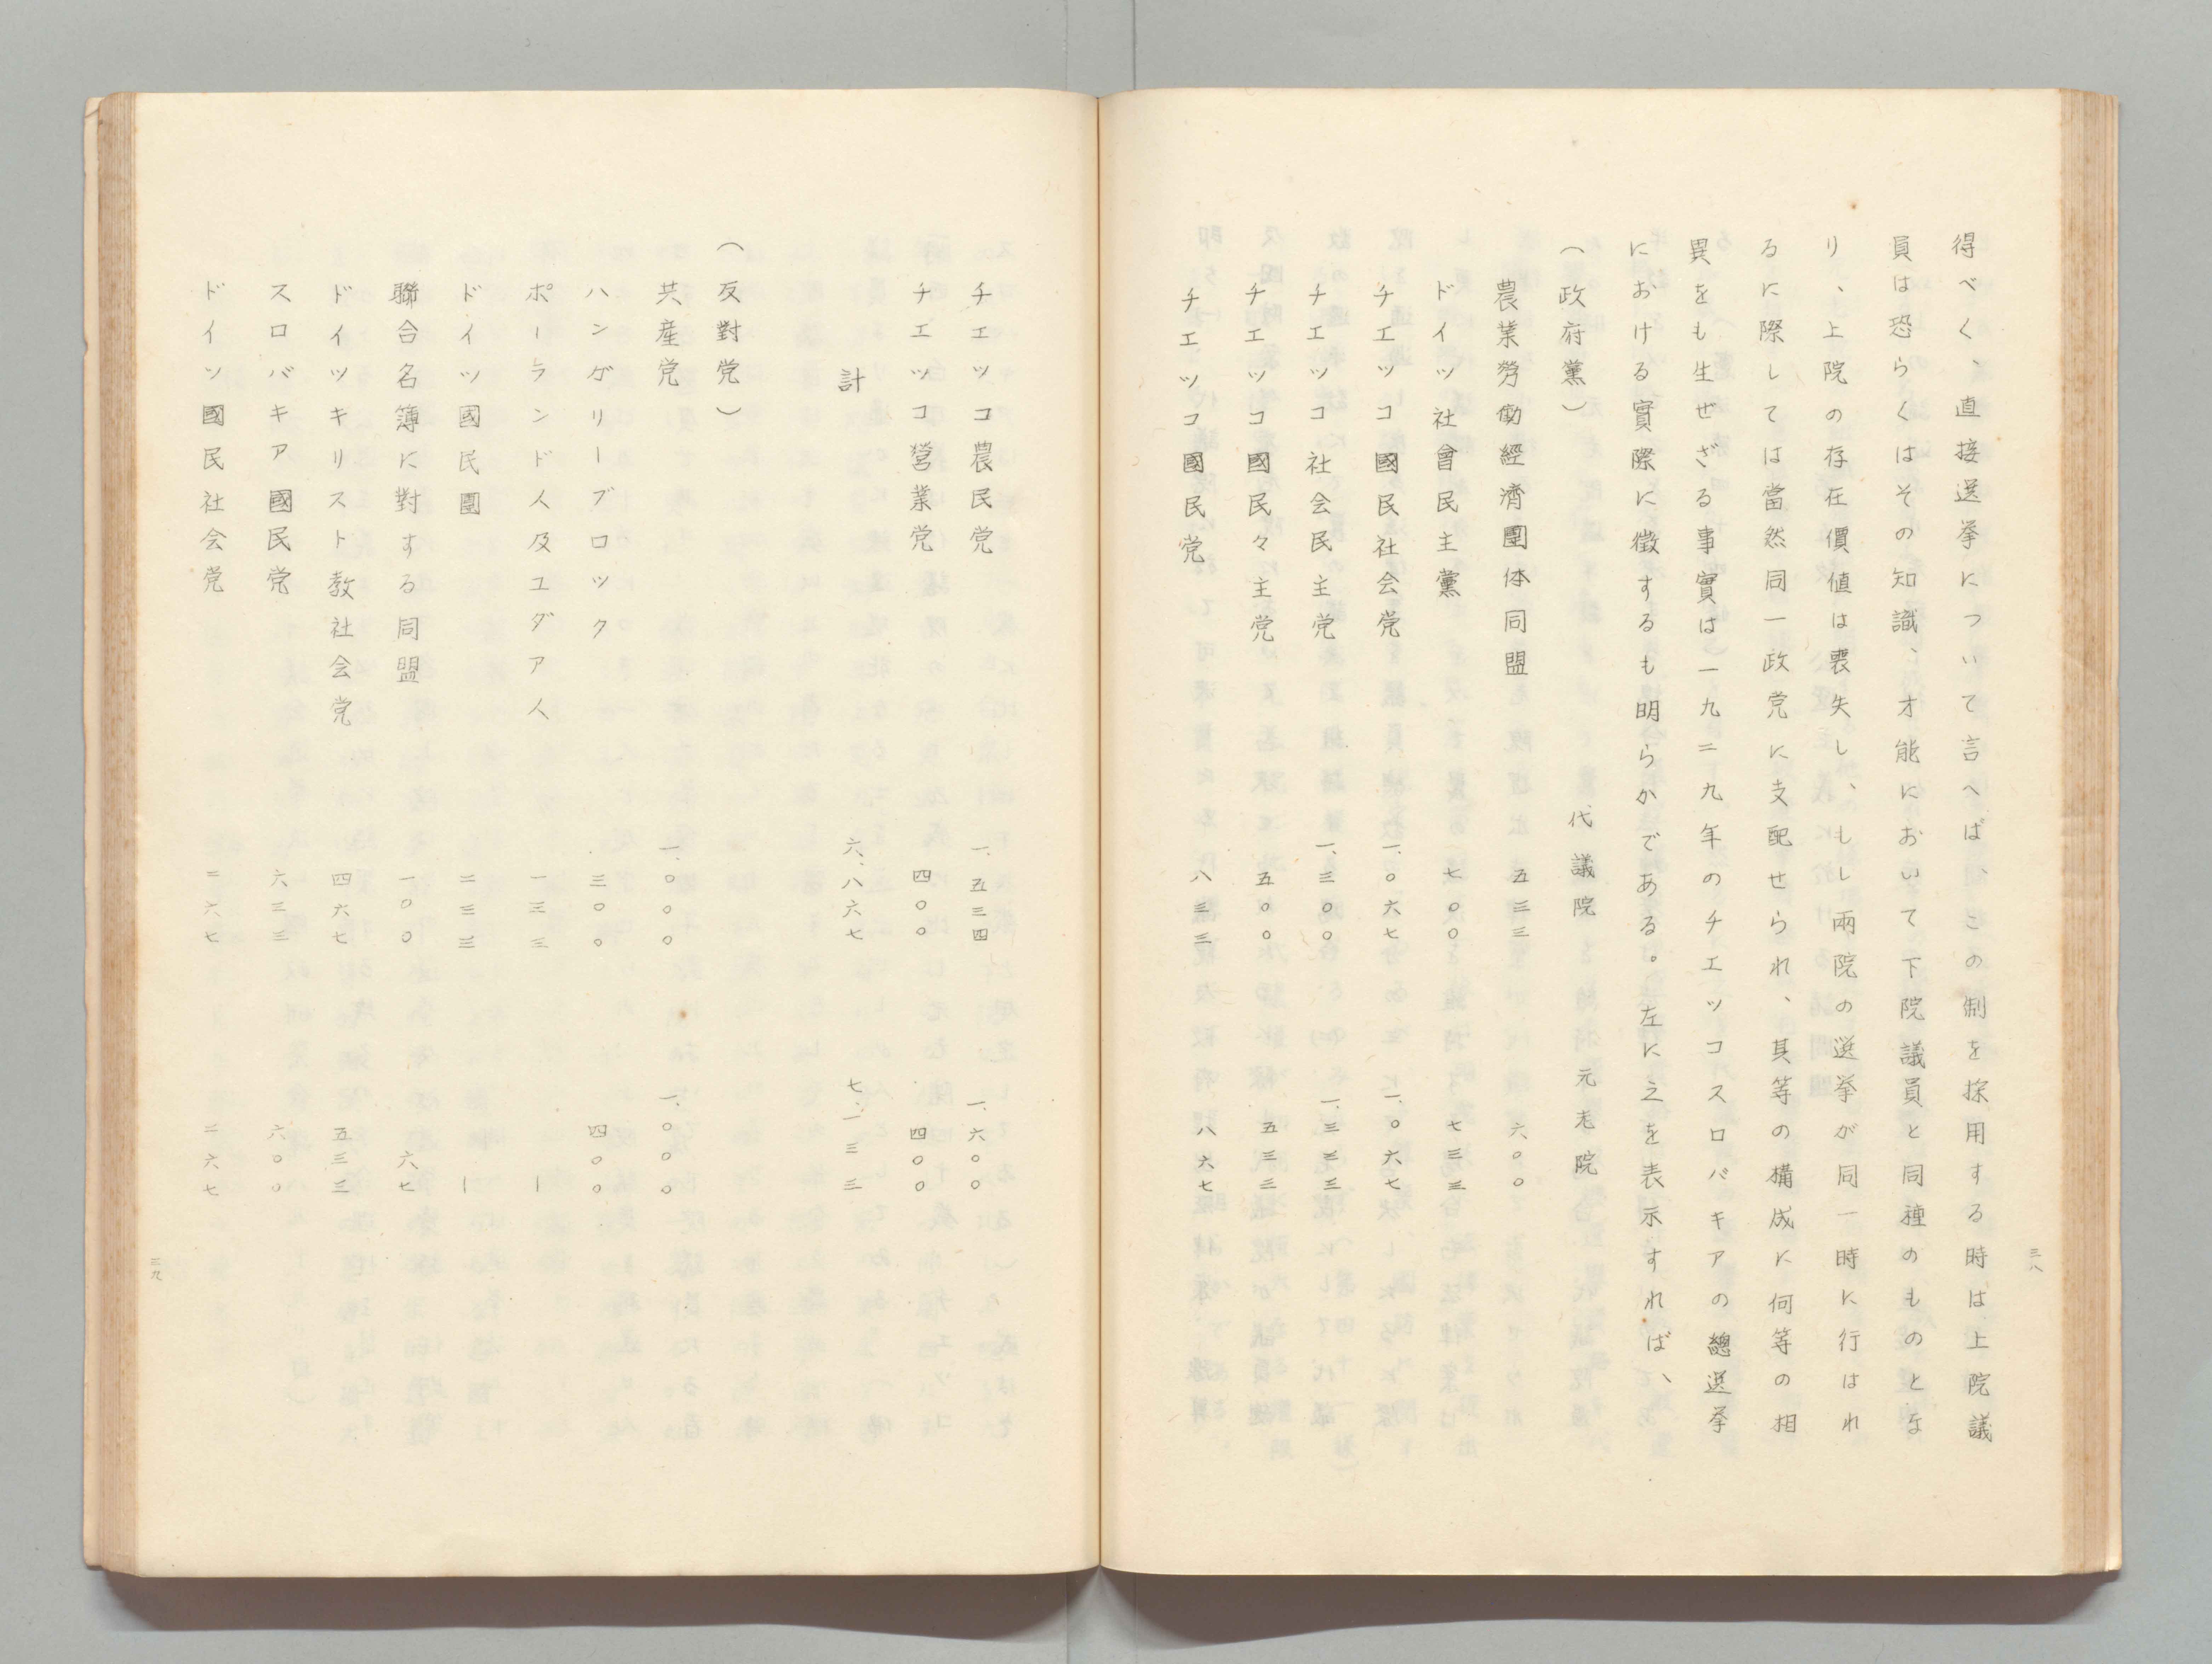 三八
得べく、直接送挙について言へば、この制を採用する時は上院議
員は恐らくはその知識、才能において下院議員と同種のものとな
り、上院の存在價値は喪失し、もし両院の送挙が同一時に行はれ
るに際しては當然同一政党に支配せられ、其等の構成に何等の相
異をも生せざる事實は一九二九年のチエツコスロバキアの總送挙
における實際に徴するも明らかである。左に之を表示すれば、
（政府黨） 代議院 元老院
農業勞働經濟團体同盟 五三三 六〇〇
ドイツ社會民主黨 七〇〇 七三三
チエツコ國民社会党 一、〇六七 一、〇六七
チエツコ社会民主党 一、三〇〇 一、三三三
チエツコ國民々主党 五〇〇 五三三
チエツコ國民党 八三三 八六七
チエツコ農民党 一、五三四 一、六〇〇
チエツコ営業党 四〇〇 四〇〇
計 六、八六七 七、一三三
（反對党）
共産党 一、〇〇〇 一、〇〇〇
ハンガリーブロック 三〇〇 四〇〇
ポーランド人及ユダア人 一三三 ー
ドイツ國民團 二三三 ー
聯合名簿に對する同盟 一〇〇 六七
ドイツキリスト教社会党 四六七 五三三
スロバキア國民党 六三三 六〇〇
ドイツ國民社会党 二六七 二六七
三九